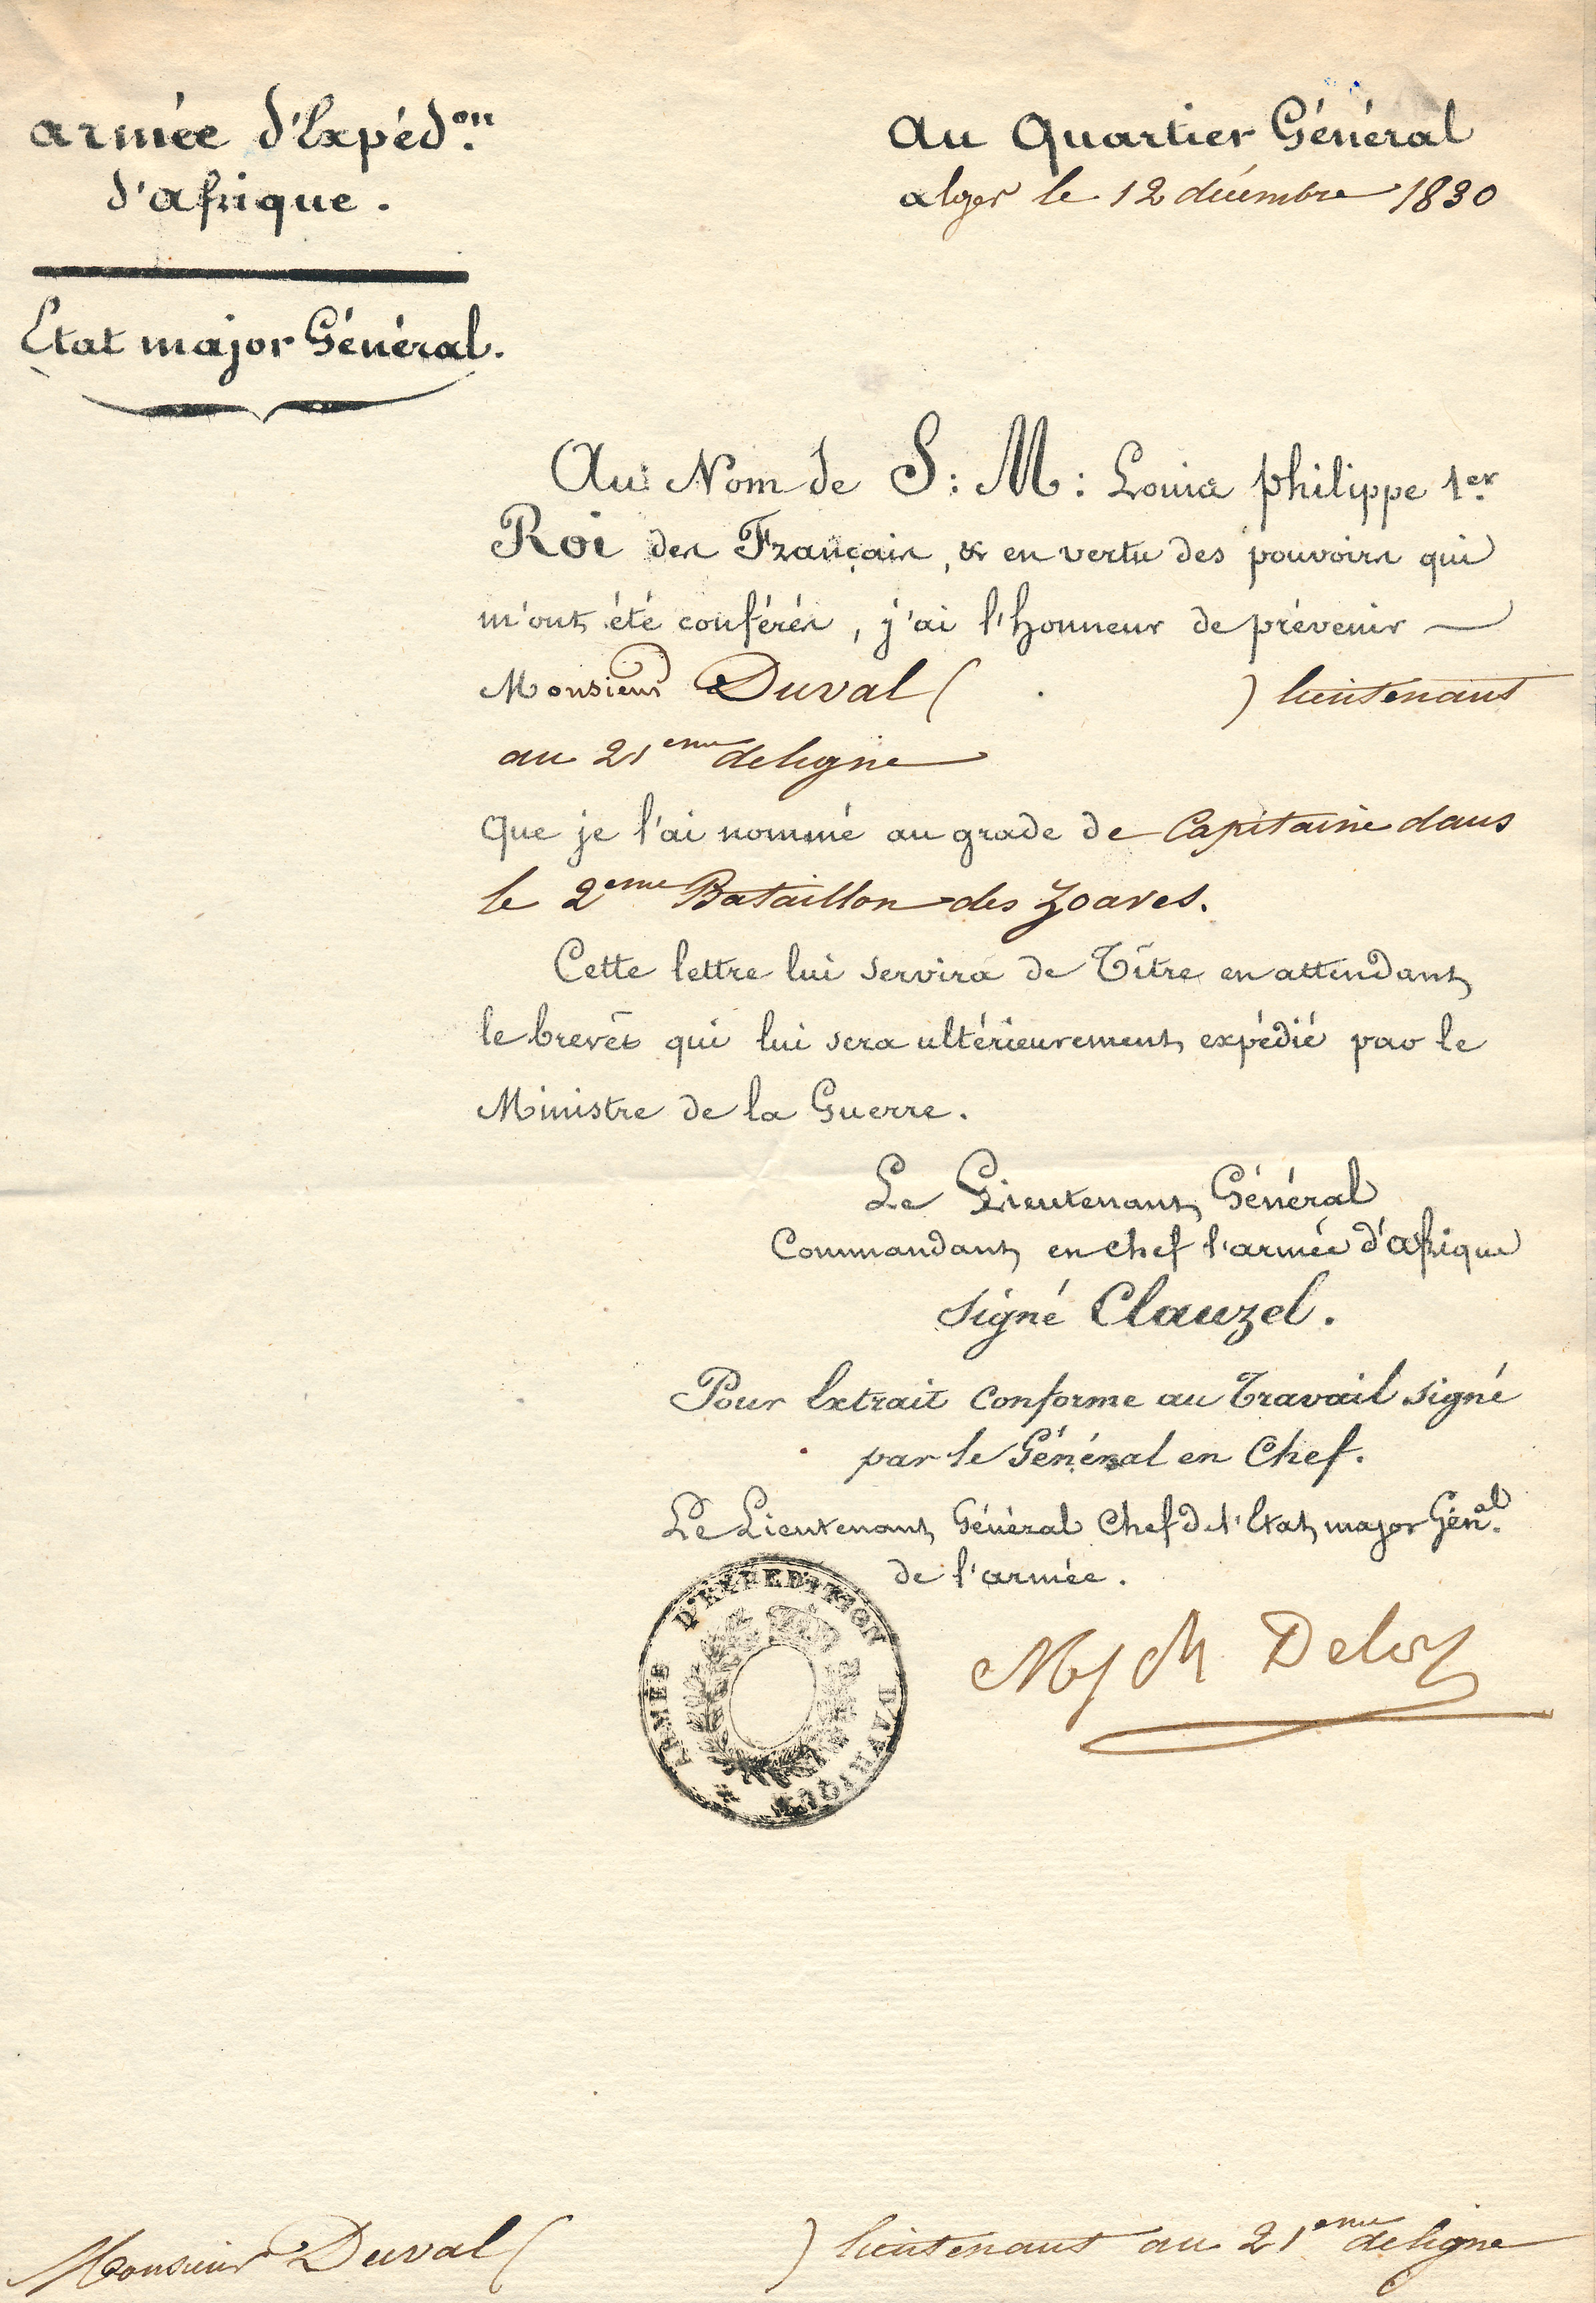 armée d'Expéd.on
d'afrique.
Etat major Général.
Au Quartier Général
alger le 12 décembre 1830
Au Nom de S: M: Louis philippe 1er
Roi des Français, & en vertu des pouvoirs qui
m'ont été conférés, j'ai l'honneur de prévenir —
Monsieur Duval ( ) lieutenant
au 21eme de ligne
que je l'ai nommé au grade de Capitaine dans
le 2eme Bataillon des Zoaves.
Cette lettre lui servira de Titre en attendant
le brevet qui lui sera ultérieurement expédié par le
Ministre de la Guerre.
Le Lieutenant Général
Commandant en chef l'armée d'afrique
signé Clauzel.
Pour Extrait Conforme au Travail signé
par le Général en Chef.
Le Lieutenant Général Chef de l'Etat major Gén.al
de l'armée.
ARMÉE D'EXPEDITION D'AFRIQUE
Delort
Monsieur Duval ( ) lieutenant au 21eme de ligne